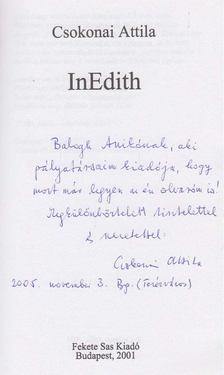 Csokonai Attila
InEdith
Balogh Anikónak, aki
pályatársaim kiadója, hogy
most már legyen az én olvasóm is!
Megkülönböztetett tisztelettel
& szeretettel:
Csokonai Attila
2005. november 3. Bp. (Terézváros)
Fekete Sas Kiadó
Budapest, 2001